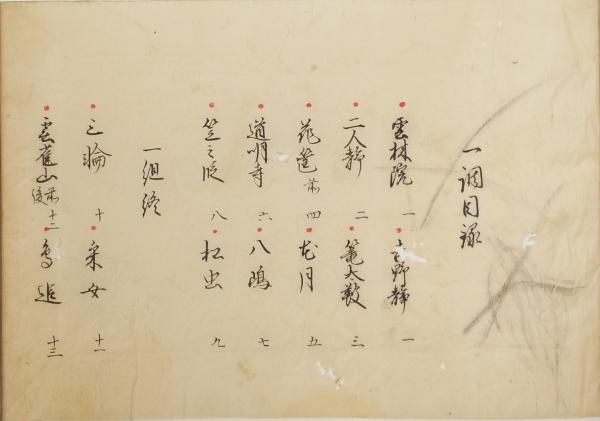 一調目録
雲林院 一
吉野静 一
二人静 二
籠太鼓 三
花筐 前 四
女月 五
道明寺 六
八嶋 七
笠之段 八
松虫 九
一組終
三輪 十
采女 十一
雲雀山 前後 十二
鳥追 十三